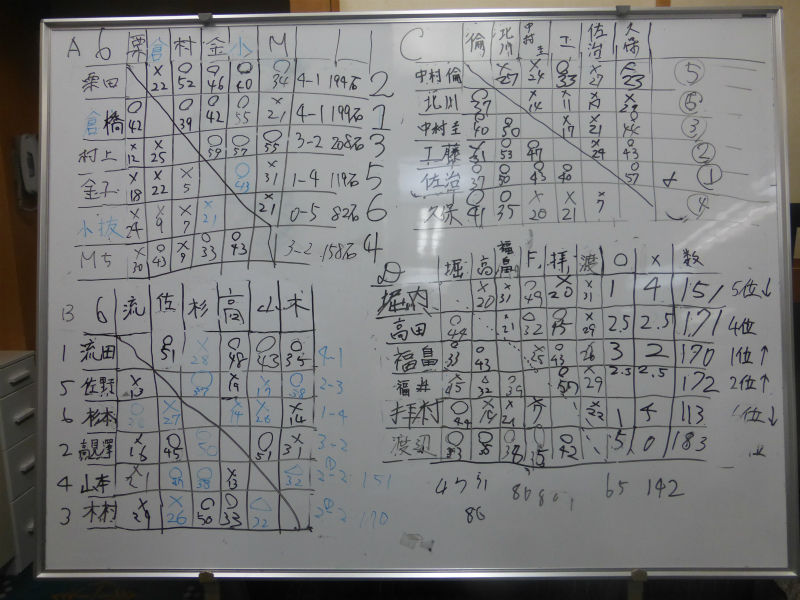 A 6 栗 倉 村 金 小 M
栗田 × 22 ○ 52 ○ 46 ○ 40 ○ 34 4-1 194石 2
倉橋 ○ 42 ○ 39 ○ 42 ○ 55 × 21 4-1 199石 1
村上 × 12 × 25 ○ 59 ○ 57 ○ 55 3-2 208石 3
金子 × 18 × 22 × 5 ○ 43 × 31 1-4 119石 5
小坂 × 24 × 9 × 7 × 21 × 21 0-5 82石 6
M5 × 30 ○ 43 × 9 ○ 33 ○ 43 3-2 158石 4
B 6 流 佐 杉 高 山 木
1 流田 ○ 51 × 28 ○ 48 ○ 43 ○ 35 4-1
5 佐野 × 13 ○ × 19 × 17 ○ 38 2-3
6 杉本 ○ 36 × 27 × 14 × 26 × 14 1-4
2 高見澤 × 16 ○ 45 ○ 50 ○ 51 × 31 3-2
4 山本 × 21 ○ ○ 38 × 13 △ 32 2-2 151
3 木村 × 29 × 26 ○ 50 ○ 33 △ 22 2-2 170
C 倫 北川 中村圭 工 佐治 久保
中村倫 × 27 × 24 ○ 33 × 27 × 23 ⑤
北川 ○ 37 × 14 × 11 × × 23 ⑥
中村圭 ○ 40 ○ 50 × 17 × 21 ○ 44 ③
工藤 × 31 ○ 53 ○ 47 × 24 ○ 43 ②
佐治 ○ 37 ○ 50 ○ 43 ○ 40 ○ 57 ①
久保 ○ 41 ○ 35 × 20 × 21 × 7 ④
D 堀 高 福畠 F. 拝 渡 ○ × 数
堀内 × 20 × 31 ○ 49 × 20 × 31 1 4 151 5位↓
高田 ○ 44 × 21 △ 32 ○ 45 × 29 2.5 2.5 171 4位
福畠 ○ 33 ○ 43 × 25 ○ 43 × 26 3 2 170 1位↑
福井 × 45 △ 32 ○ 39 ○ × 29 2.5 2.5 172 2位↑
拝村 ○ 44 × × 21 × 17 × 22 1 4 113 位↓
渡辺 ○ ○ ○ ○ ○ 42 5 0 183
65 142
86